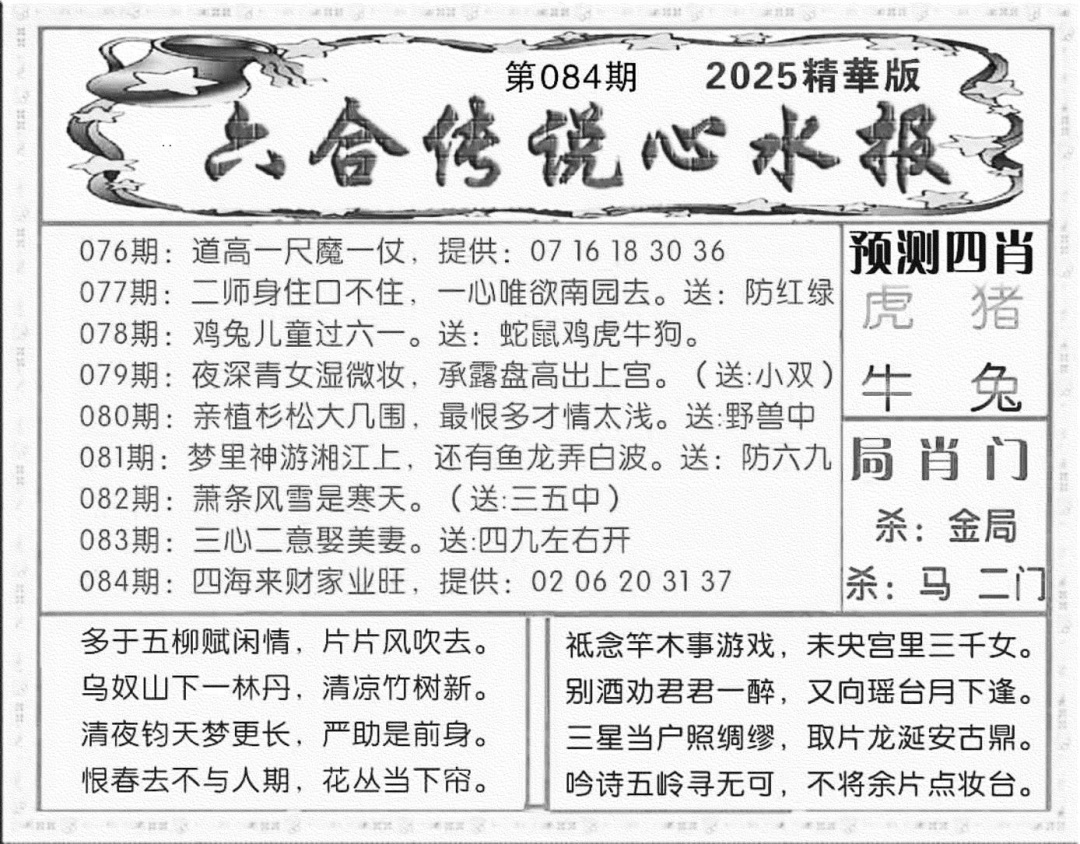 第084期 2025精華版
六合传说心水报
076期：道高一尺魔一仗，提供：07 16 18 30 36
077期：二师身住口不住，一心唯欲南园去。送：防红绿
078期：鸡兔儿童过六一。送：蛇鼠鸡虎牛狗。
079期：夜深青女湿微妆，承露盘高出上宫。（送:小双）
080期：亲植杉松大几围，最恨多才情太浅。送:野兽中
081期：梦里神游湘江上，还有鱼龙弄白波。送：防六九
082期：萧条风雪是寒天。（送:三五中）
083期：三心二意娶美妻。送:四九左右开
084期：四海来财家业旺，提供：02 06 20 31 37
预测四肖
虎 猪
牛 兔
局肖门
杀：金局
杀：马 二门
多于五柳赋闲情，片片风吹去。
乌奴山下一林丹，清凉竹树新。
清夜钧天梦更长，严助是前身。
恨春去不与人期，花丛当下帘。
祗念竿木事游戏，未央宫里三千女。
别酒劝君君一醉，又向瑶台月下逢。
三星当户照绸缪，取片龙涎安古鼎。
吟诗五岭寻无可，不将余片点妆台。